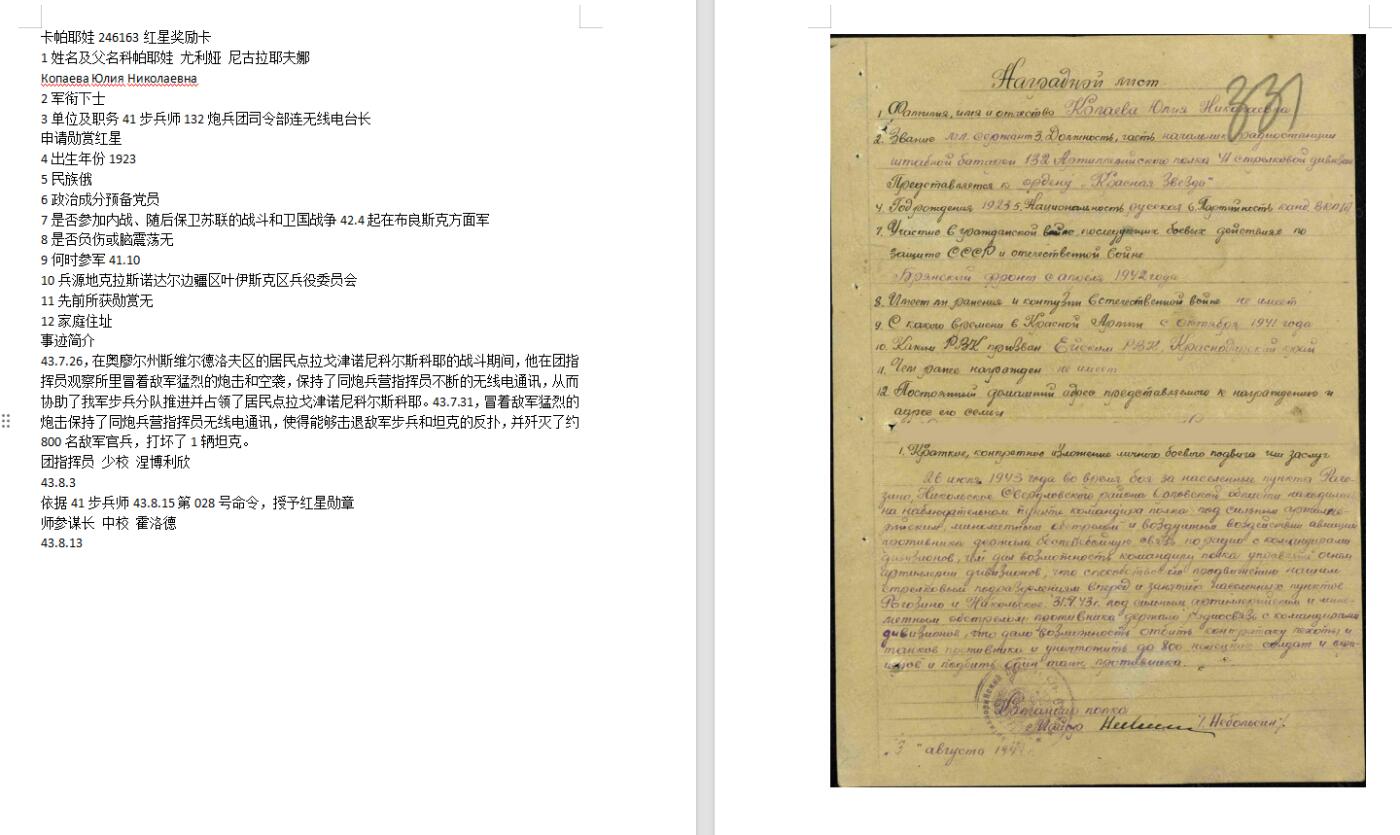 卡帕耶娃 246163 红星奖励卡
1 姓名及父名科帕耶娃 尤利娅 尼古拉耶夫娜
Копаева Юлия Николаевна
2 军衔下士
3 单位及职务 41 步兵师 132 炮兵团司令部连无线电台长
申请勋赏红星
4 出生年份 1923
5 民族俄
6 政治成分预备党员
7 是否参加内战、随后保卫苏联的战斗和卫国战争 42.4 起在布良斯克方面军
8 是否负伤或脑震荡无
9 何时参军 41.10
10 兵源地克拉斯诺达尔边疆区叶伊斯克区兵役委员会
11 先前所获勋赏无
12 家庭住址
事迹简介
43.7.26，在奥廖尔州斯维尔德洛夫区的居民点拉戈津诺尼科尔斯科耶的战斗期间，他在团指
挥员观察所里冒着敌军猛烈的炮击和空袭，保持了同炮兵营指挥员不断的无线电通讯，从而
协助了我军步兵分队推进并占领了居民点拉戈津诺尼科尔斯科耶。43.7.31，冒着敌军猛烈的
炮击保持了同炮兵营指挥员无线电通讯，使得能够击退敌军步兵和坦克的反扑，并歼灭了约
800 名敌军官兵，打坏了 1 辆坦克。
团指挥员 少校 涅博利欣
43.8.3
依据 41 步兵师 43.8.15 第 028 号命令，授予红星勋章
师参谋长 中校 霍洛德
43.8.13
Наградной лист
331
1. Фамилия, имя и отчество Копаева Юлия Николаевна
2. Звание мл. сержант 3. Должность, часть начальник радиостанции
штабной батареи 132 Артиллерийского полка 41 стрелковой дивизии
Представляется к ордену „Красная Звезда"
4. Год рождения 1923 5. Национальность русская 6. Партийность канд. ВКП(б)
7. Участие в гражданской войне последующих боевых действиях по
защите СССР и отечественной войне
Брянский фронт с апреля 1942 года
8. Имеет ли ранения и контузии в отечественной войне не имеет
9. С какого времени в Красной Армии с октября 1941 года
10. Каким РВК призван Ейским РВК, Краснодарский край
11. Чем ранее награжден не имеет
12. Постоянный домашний адрес представляемого к награждению и
адрес его семьи
1. Краткое, конкретное изложение личного боевого подвига или заслуг
26 июля 1943 года во время боя за населенные пункта Рого-
зино, Никольское Свердловского района Орловской области находилась
на наблюдательном пункте командира полка под сильным артилле-
рийским, минометным обстрелом и воздушным воздействии авиации
противника держала бесперебойную связь по радио с командирами
дивизионов, чем дал возможность командиру полка управлять огнем
артиллерии дивизионов, что способствовало продвижению нашим
стрелковым подразделениям вперед и занятию населенных пунктов
Рогозино и Никольское. 31.7.43г. под сильным артиллерийским и мино-
метным обстрелом противника держала радиосвязь с командирами
дивизионов, что дало возможность отбить контратаку пехоты и
танков противника и уничтожить до 800 немецких солдат и офи-
церов и подбить один танк противника.
Командир полка
Майор /Небольсин/
„3" августа 194